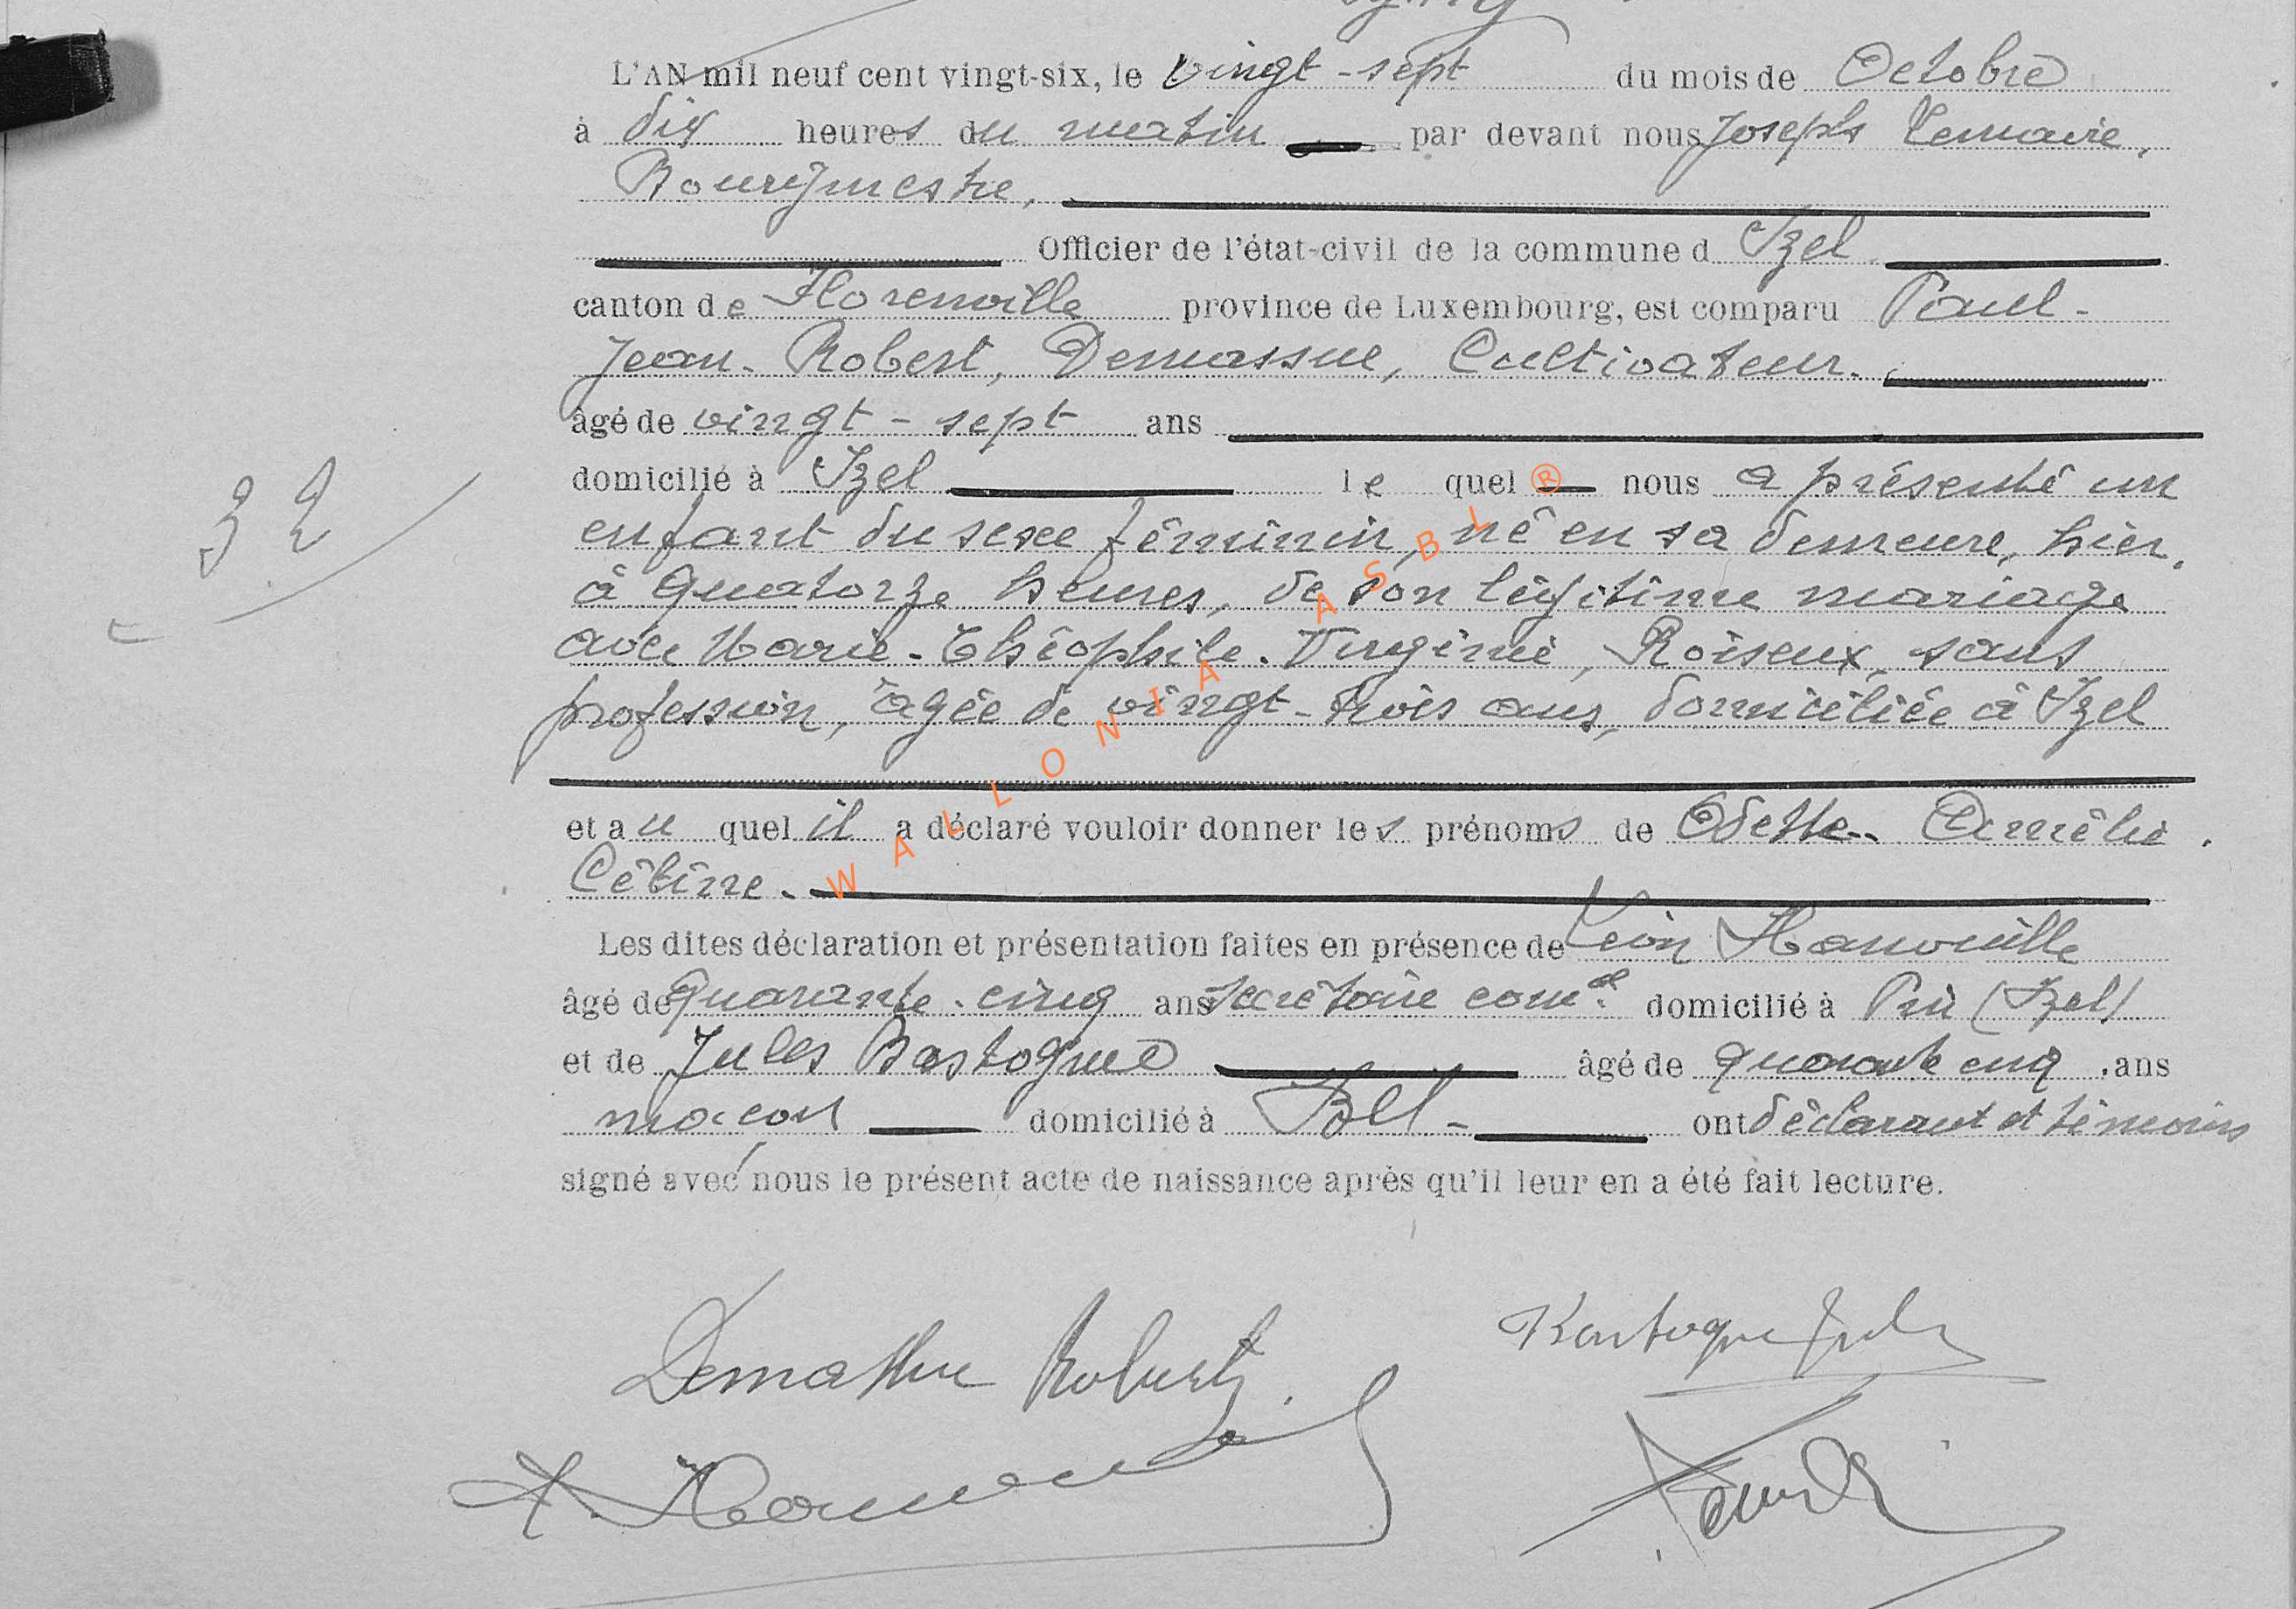 L'AN mil neuf cent vingt-six, le vingt-sept du mois de Octobre
à dix heures du matin par devant nous Joseph Lemaire,
Bourgmestre,
Officier de l'état-civil de la commune d Izel
canton de Florenville province de Luxembourg, est comparu Paul-
Jean-Robert, Demassue, Cultivateur.
âgé de vingt-sept ans
domicilié à Izel le quel ® nous a présenté un
enfant du sexe féminin, né en sa demeure, hier,
à quatorze heures, de son légitime mariage
avec Marie-Théophile-Virginie, Roiseux, sans
profession, âgée de vingt-trois ans, domiciliée à Izel
et au quel il a déclaré vouloir donner les prénoms de Odette-Amélie
Céline.
Les dites déclaration et présentation faites en présence de Léon Hanouille
âgé de quarante-cinq ans secrétaire com.al domicilié à Pin (Izel)
et de Jules Bastogne âgé de quarante cinq ans
maçon domicilié à Izel- ont déclarant et témoins
signé avec nous le présent acte de naissance après qu'il leur en a été fait lecture.
32
WALLONIA ASBL
Demassue Robert.
Bastogne Jules